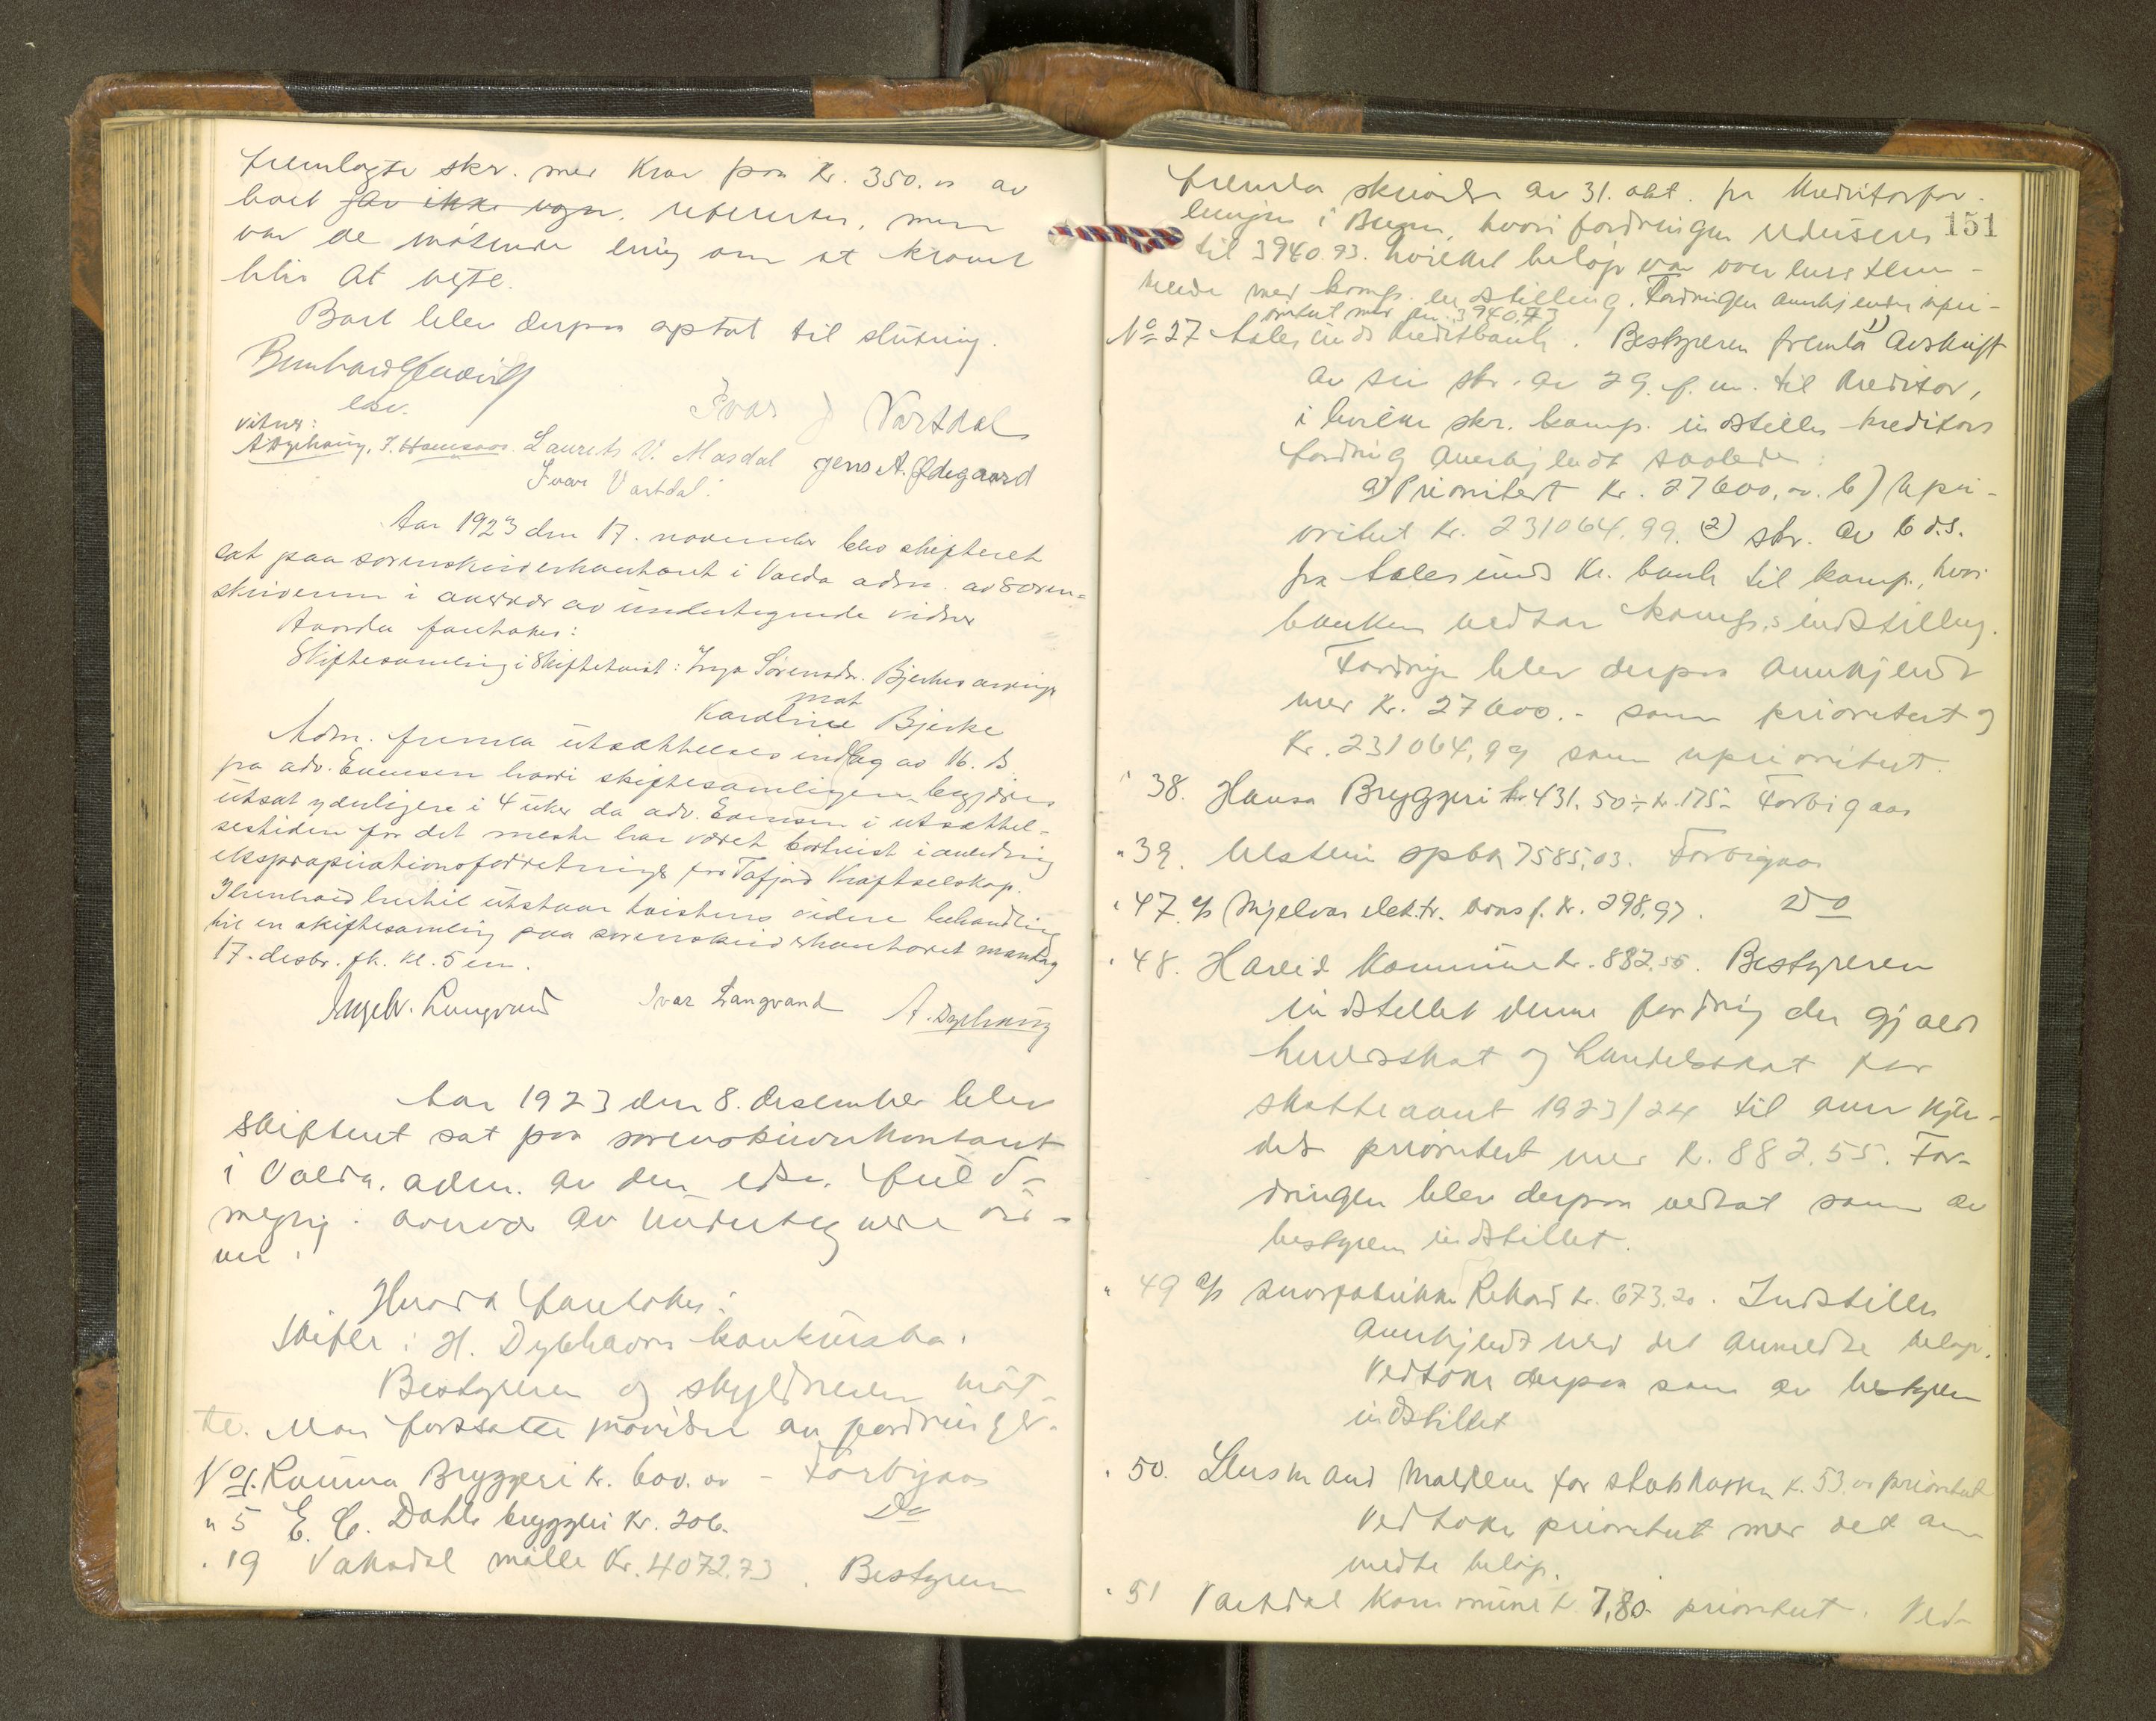 fremlagte skr. med krav paa kr. 350.00 av
boet ~~fra ikke vogn~~. refereres, men
var de møtende enig om at kravet
blir at negte.
Boet blev derpaa optat til slutning.
Ivar J Vartdal
vitner:
A Dyrhaug. J. Hamsaas. Laurits V. Masdal Jens A. Ødegaard
Ivar Vartdal.
Aar 1923 den 17. november blev skifteret
sat paa sorenskriverkontoret i Volda adm. av soren-
skriveren i overvær av undertegnede vidner
Hvorda foretokes:
Skiftesamling i Skiftetvist: Inga Sørensdr. Bjerkes arvinger
mot
Karoline Bjerke
Adm. fremla utsættelsesindlæg av 16. ds
fra adv. Evensen hvori skiftesamlingen begjæres
utsat yderligere i 4 uker da adv. Evensen i utsættel-
sestiden for det meste har været bortreist i anledning
ekspropriationsforretninger for Tafjord Kraftselskap.
I henhold hertil utstaar tvistens videre behandling
til en skiftesamling paa sorenskriverkontoret mandag
17. desbr. fk. kl. 5 em.
Ingebr. Langvand Ivar Langvand A. Dyrhaug
Aar 1923 den 8. desember blev
skifteret sat paa sorenskriverkontoret
i Volda. adm. av den edsv. fuld-
megtig i overvær av undertegnede vid-
ner.
Hvorda foretokes:
Skifte i H. Dybhavns konkursbo.
Bestyreren og skyldneren møt-
te. Man fortsatte prøvelsen av fordringer.
No 1. Rauma Bryggeri kr. 600.00 - Forbigaaes
" 5 E. C. Dahls bryggeri kr. 206. Do
" 19 Vaksdal mølle Kr. 4072.73. Bestyreren
151
fremla skrivelse av 31. okt. fra Kreditorfor-
eningen i Bergen, hvori fordringen reduseres
til 3940.93. hvilket beløp var overensstem-
mende med komp. indstilling. Fordringen anerkjendes upri-
oritert med kr. 3940.73
No 27 Aalesunds Kreditbank. Bestyreren fremla 1) Avskrift
av sin skr. av 29. f. m. til kreditor,
i hvilken skr. komp. indstilles kreditors
fordring anerkjendt saaledes:
a) Prioritert kr. 27600.00. b) Upri-
oritert kr. 231064.99. 2) skr. av 6 ds.
fra Aalesunds Kr. bank til komp., hvori
banken vedtar komp.s indstilling.
Fordringen blev derpaa anerkjendt
med kr. 27600.- som prioritert og
Kr. 231064,99 som uprioritert.
" 38. Hansa Bryggeri kr 431.50 ÷ kr. 175.- Forbigaaes
" 39. Ulstein spbk 7585,03. Forbigaaes
" 47. a/s Mjelvas elektr. kr. 298,97. Do
" 48. Hareid Kommune kr. 882.55. Bestyreren
indstillet denne fordring der gjælder
herredsskat og handelsskat for
skatteaaret 1923/24 til anerkjen-
delse prioritert med kr. 882.55. For-
dringen blev derpaa vedtat som av
bestyreren indstillet.
" 49 a/s snorfabrikken Rekord kr. 673.20. Indstilles
anerkjendt med det anmeldte beløp.
Vedtokes derpaa som av bestyreren
indstillet
" 50. Lensmand Maaseide for statskassen kr. 53.00 prioritert
Vedtokes prioritert med det an-
meldte beløp.
" 51 Vartdal kommune kr 7,80 prioritert. Ved-